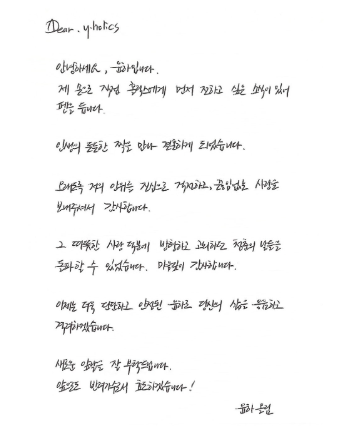 Dear. y.holics
안녕하세요, 윤하입니다.
제 손으로 직접 홀릭스에게 먼저 전하고 싶은 소식이 있어
펜을 듭니다.
인생의 든든한 짝을 만나 결혼하게 되었습니다.
오래도록 저의 안위를 진심으로 걱정하고, 끊임없는 사랑을
보내주셔서 감사합니다.
그 따뜻한 사랑 덕분에 방황하고 고뇌하는 청춘의 많은 날을
돌파할 수 있었습니다. 마음깊이 감사합니다.
이제는 더욱 단단하고 안정된 윤하로 당신의 삶을 응원하고
격려하겠습니다.
새로운 앞날을 잘 부탁드립니다.
앞으로도 변함없이 효도하겠습니다!
윤하 드림